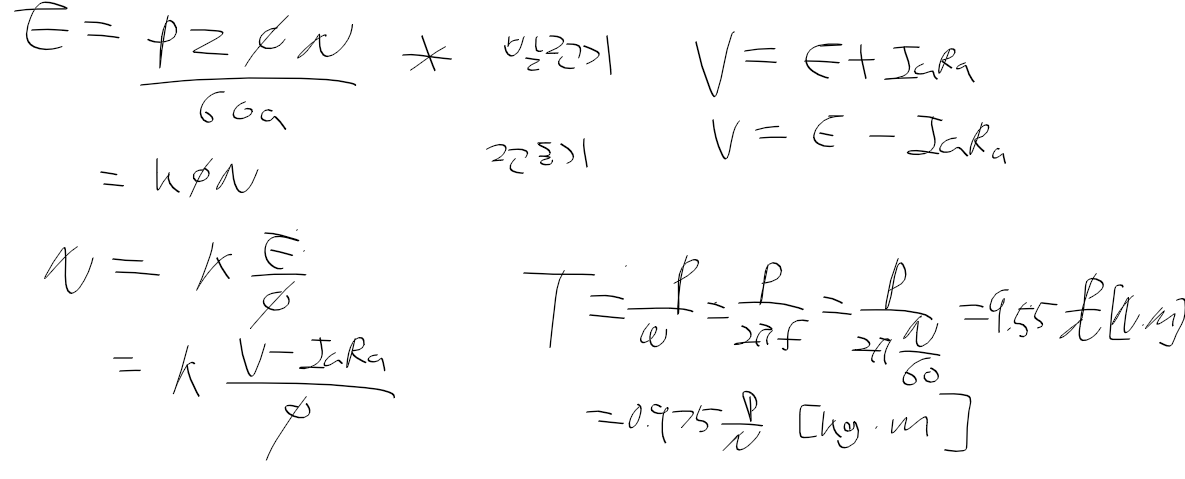 E = PZφN / 60a * 발전기 V = E + IaRa
= kφN 전동기 V = E - IaRa
N = k E/φ
= k (V - IaRa)/φ
T = P/ω = P/2πf = P/(2π N/60) = 9.55 P/N [N.m]
= 0.975 P/N [kg.m]